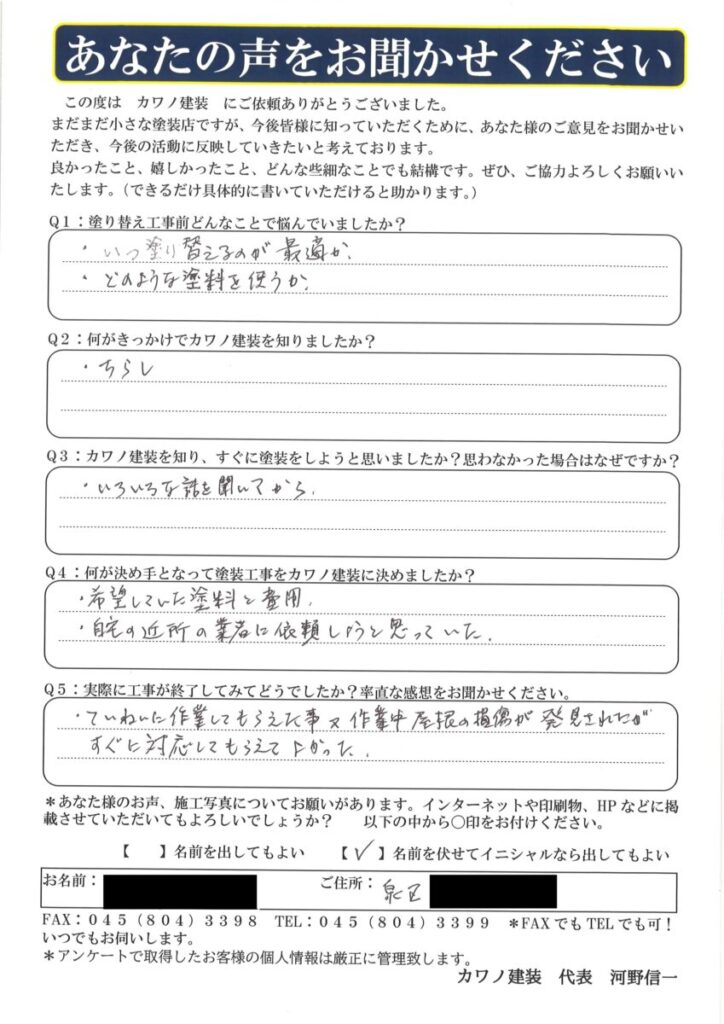 あなたの声をお聞かせください
この度は　カワノ建装　にご依頼ありがとうございました。
まだまだ小さな塗装店ですが、今後皆様に知っていただくために、あなた様のご意見をお聞かせい
ただき、今後の活動に反映していきたいと考えております。
良かったこと、嬉しかったこと、どんな些細なことでも結構です。ぜひ、ご協力よろしくお願いい
たします。（できるだけ具体的に書いていただけると助かります。）
Q１：塗り替え工事前どんなことで悩んでいましたか？
・いつ塗り替えるのが最適か、
・どのような塗料を使うか、
Q２：何がきっかけでカワノ建装を知りましたか？
・ちらし
Q３：カワノ建装を知り、すぐに塗装をしようと思いましたか？思わなかった場合はなぜですか？
・いろいろな話を聞いてから、
Q４：何が決め手となって塗装工事をカワノ建装に決めましたか？
・希望していた塗料と費用、
・自宅の近所の業者に依頼しようと思っていた、
Q５：実際に工事が終了してみてどうでしたか？率直な感想をお聞かせください。
・ていねいに作業してもらえた事又作業中屋根の損傷が発見されたが
すぐに対応してもらえてよかった、
＊あなた様のお声、施工写真についてお願いがあります。インターネットや印刷物、HPなどに掲
載させていただいてもよろしいでしょうか？　以下の中から○印をお付けください。
【　】名前を出してもよい　【✓】名前を伏せてイニシャルなら出してもよい
お名前：　ご住所：泉区
FAX：０４５（８０４）３３９８　TEL：０４５（８０４）３３９９　＊FAXでもTELでも可！
いつでもお伺いします。
＊アンケートで取得したお客様の個人情報は厳正に管理致します。
カワノ建装　代表　河野信一